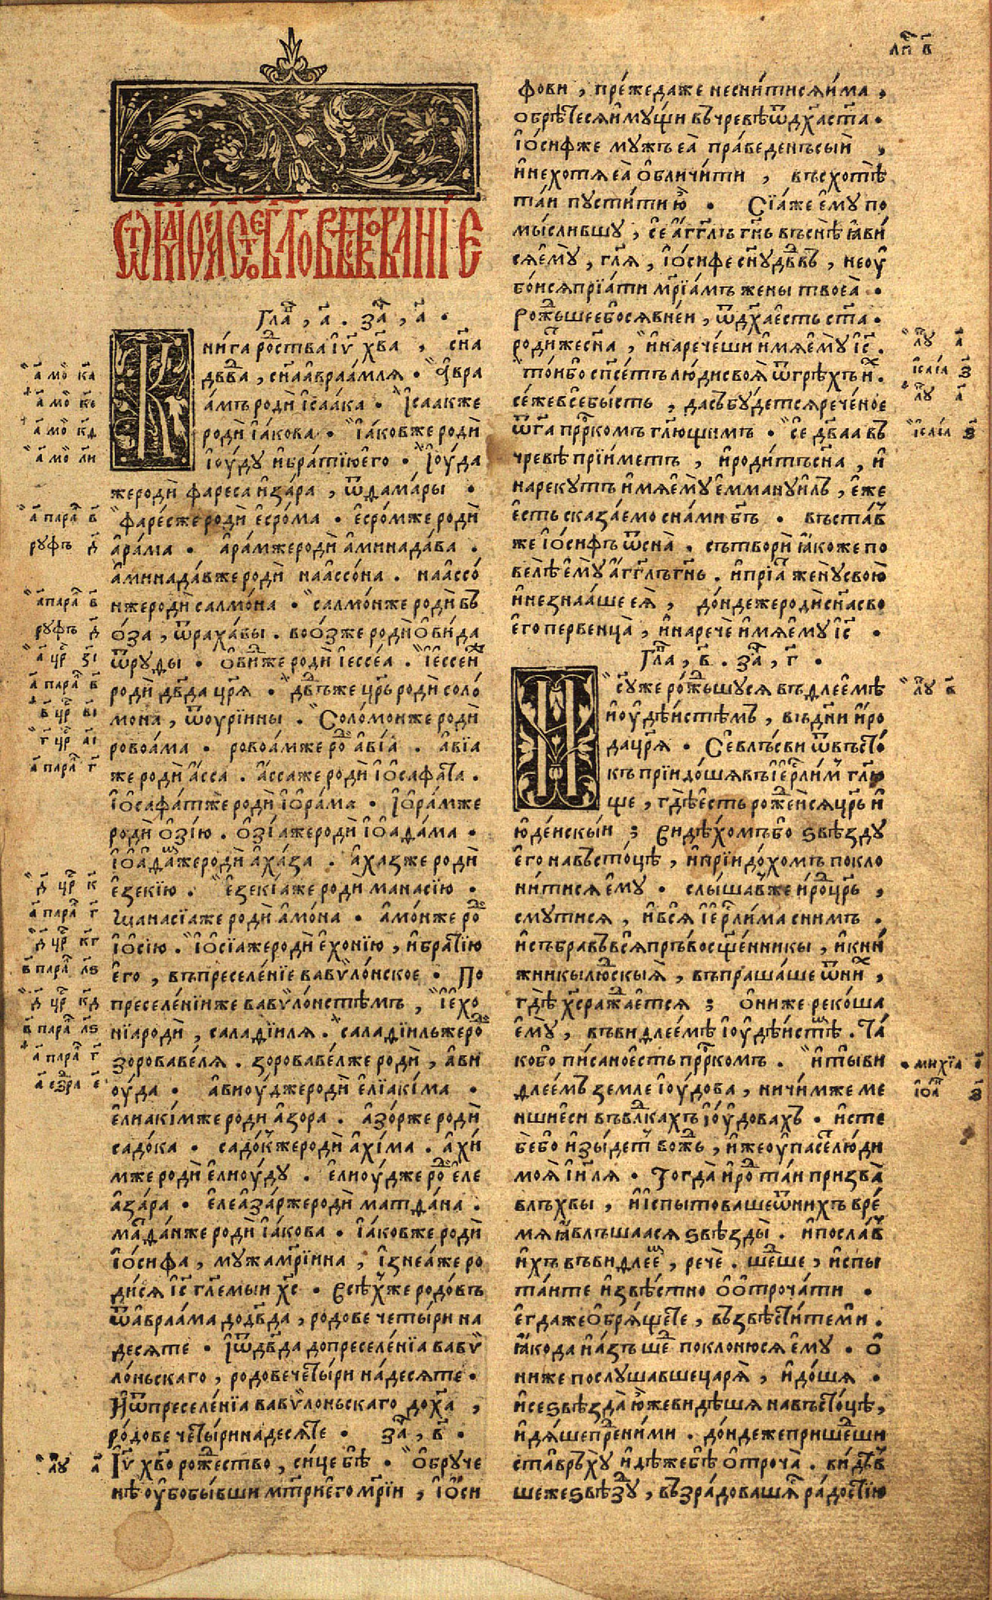 Ѿ маѳеа ст҃ое бл҃говѣствованїе
Гла҃, а҃. за҃, а҃.
Книга рѡ҃ства іѵ҃ хв҃а, сн҃а
дв҃ва, сн҃а авраамля. авра
амъ роди ісаака. Ісаакже
роди іакова. іаковже роди
іоуду и братїю его. Іоуда
же роди фареса и зара, ѿ дамары.
фаресже роди есрома. есромже роди
арама. арамже роди аминадава.
аминадавже роди наассона. наассо
нже роди салмона. салмонже роди во
оза, ѿ рахавы. воозже роди овида
ѿ руды. овиже роди іессеа. іессеи
роди дв҃да цр҃я. дв҃дъже цр҃ь роди соло
мона, ѿ оурїины. Соломонже роди
ровоама. ровоамже ро҃ авїа. авїа
же роди асса. ассаже роди іосафата.
іосафатже роди іорама. іорамже
роди озїю. озїаже роди іоадама.
іоадамже роди ахаза. ахазже роди
езекїю. езекїаже роди манасїю.
манасїаже роди амона. амонже ро҃
іосїю. іосїаже роди ехонїю, и братїю
его, въ преселенїе вавѵлонское. По
преселенїиже вавѵлонстѣмъ, іехо
нїа роди, саладїиля. саладїильже ро҃
зоровавеля. зоровавелже роди, ави
оуда. авиоуджероди елїакіма.
елиакімже роди азора. азорже роди
садока. садокже роди ахіма. ахи
мже роди елиоуду. елиоуджеро҃ еле
азара. елеазаржероди матдана.
матданже роди іакова. іаковже роди
іосифа, мужа мр҃їина, ізнеаже ро
дися іс҃ гл҃емыи хс҃. Всѣхже родовъ
ѿ авраама до дв҃да, родове четыри на
десяте. И ѿ дв҃да до преселенїа вавѵ
лоньскаго, родове четыри надесяте.
И ѿ преселенїа вавѵлоньскаго до х҃а,
родове четыринадесяте. за҃, в҃.
Іѵ҃ хв҃о рожество, сице бѣ. обруче
нѣ оубо бывши мт҃ри его мр҃їи, іоси
фови, прежедаже неснитися има,
обрѣтеся имущи въ чревѣ ѿ дх҃а ст҃а.
іосифже мужъ еа праведенъ сый,
и не хотя еа обличити, въсхотѣ
таи пустити ю. Сїаже ему по
мыслившу, се агг҃лъ гн҃ь въ снѣ яви
ся ему, гл҃я, іосифе сн҃у дв҃въ, не оу
боися прїати мр҃їамъ жены твоеа.
рожьшеебося в неи, ѿ дх҃а есть ст҃а.
родижеснa, и наречеши имя ему іс҃.
той бо спс҃етъ люди своя ѿ грѣхъ и҃.
сежевсебысть, дасъбудетсяреченое
ѿ г҃а прр҃комъ гл҃ющимъ. се дв҃аа въ
чревѣ прїиметъ, и родитъ сн҃а, и
нарекутъ имя ему еммануилъ, еже
есть сказаемо с нами бг҃ъ. въстав
же іосифъ ѿ сна. сътвори якоже по
велѣ ему агг҃лъ гн҃ь. и прїа жену свою
и не знааше ея, дондеже роди сн҃а сво
его первенца, и нарече имя ему іс҃.
Гла҃, в҃. за҃, г҃.
Іс҃уже рожьшуся въ видлеемѣ
іоудеистѣмъ, въ дни иро
да цр҃я. Се влъсви ѿ въсто
къ прїидошя въ іер҃лим гл҃ю
ще, гдѣ есть рожеися цр҃ь и
юдеискыи; видѣхомъ бо ѕвѣзду
его на въстоцѣ, и прїидохомъ покло
нитися ему. слышавже иро҃ цр҃ь,
смутися, и вся іер҃лима с нимъ.
и събравъ вся пръвосщ҃енникы, и кни
жникы людскыя, въпрашаше ѿ ни҃,
гдѣ хс҃ ражается; ониже рекоша
ему, въ видлеемѣ іоудеистѣ. Та
ко бо писано есть прр҃комъ. и ты ви
длеемъ земле іоудова, ничимже ме
ншиеси въ влд҃ках іоудовахъ. ис те
бе бо изыдет вожь, иже оупасе люди
моя ізл҃я. Тогда иро҃ таи призва
влъхвы, и испытоваше ѿ нихъ вре
мя явлъшаася ѕвѣзды. и послав
ихъ въ видлее҃, рече. шеше, испы
таите извѣстно о отрочати.
егдаже обрящете, възвѣстите ми.
яко да и азъ ше҃ поклонюся ему. о
ниже послушавше царя, идоша.
и се ѕвѣзда юже видѣшя на въстоцѣ,
идяше пре҃ ними. дондеже пришеши
ста връху идѣже бѣ отроча. видѣв
шеже ѕвѣзду, възрадовашя радостїю